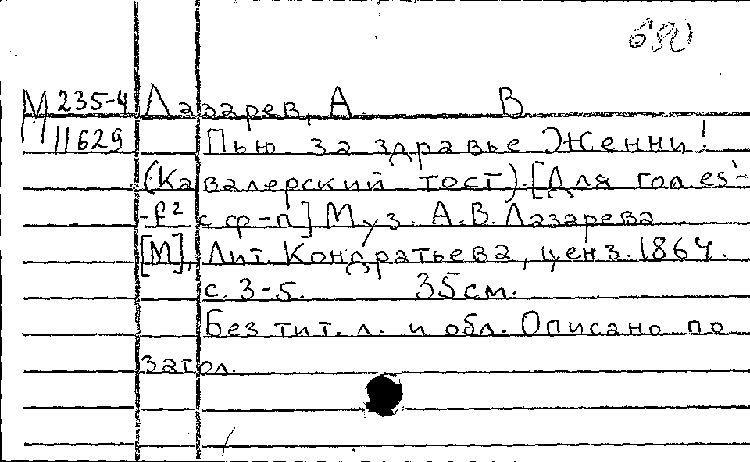 М 235-4 Лазарев, А В
11629 Пью за здравье Женни!
(Кавалерский тост). [Для гол es'-
-f² с ф-п] Муз. А.В. Лазарева
[М], Лит. Кондратьева, ценз. 1864.
с. 3-5. 35см.
Без тит. л. и обл. Описано по
загол.